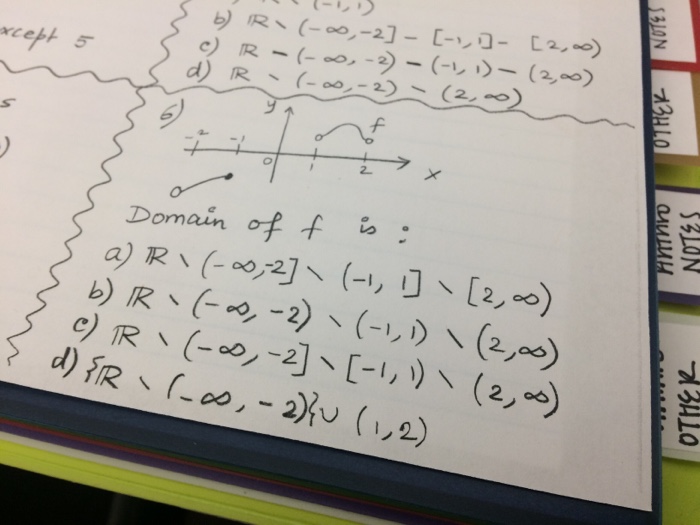 (-1, 1)
b) ℝ \ (-∞, -2] - [-1, 1] - [2, ∞)
except 5
c) ℝ - (-∞, -2) - (-1, 1) - (2, ∞)
d) ℝ \ (-∞, -2) - (2, ∞)
s
)
6)
y
f
-2 -1 0 1 2 x
Domain of f is :
a) ℝ \ (-∞, -2] \ (-1, 1] \ [2, ∞)
b) ℝ \ (-∞, -2) \ (-1, 1) \ (2, ∞)
c) ℝ \ (-∞, -2] \ [-1, 1) \ (2, ∞)
d) {ℝ \ (-∞, -2)} ∪ (1, 2)
NOTES
OTHER
NOTES
OTHER